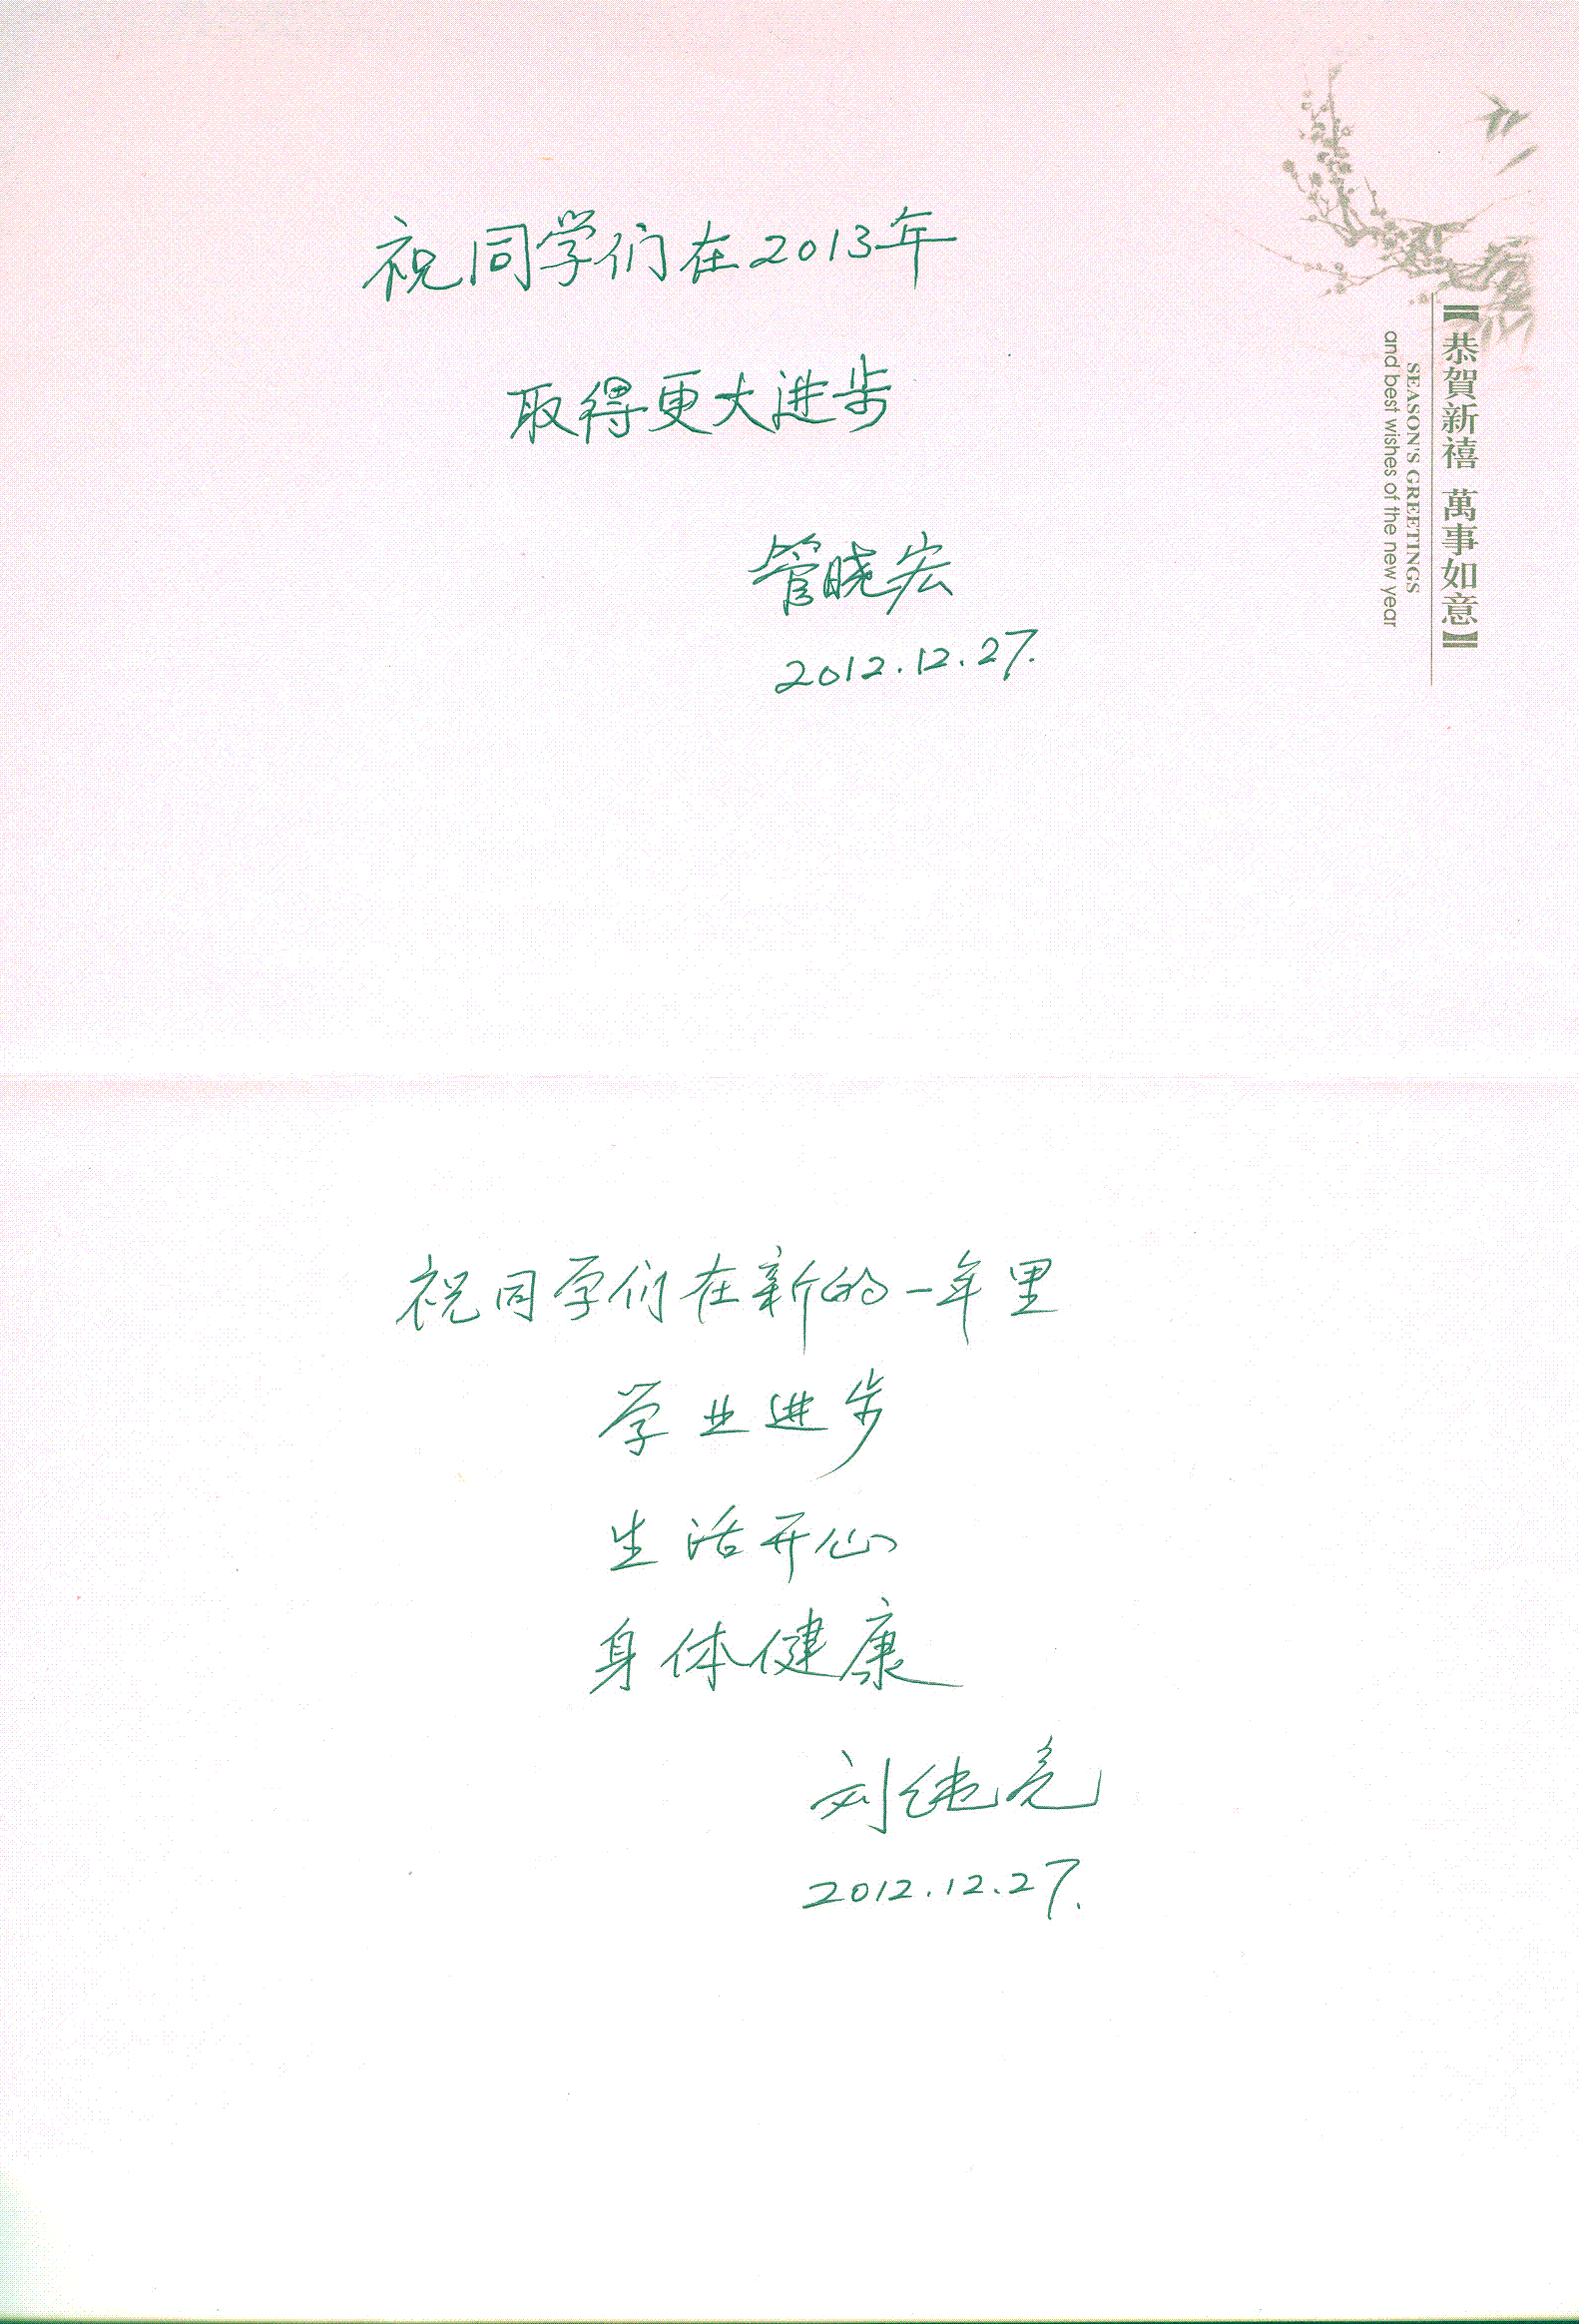 祝同学们在2013年
取得更大进步
管晓宏
2012.12.27.
【恭賀新禧 萬事如意】
SEASON'S GREETINGS
and best wishes of the new year
祝同学们在新的一年里
学业进步
生活开心
身体健康
刘继亮
2012.12.27.